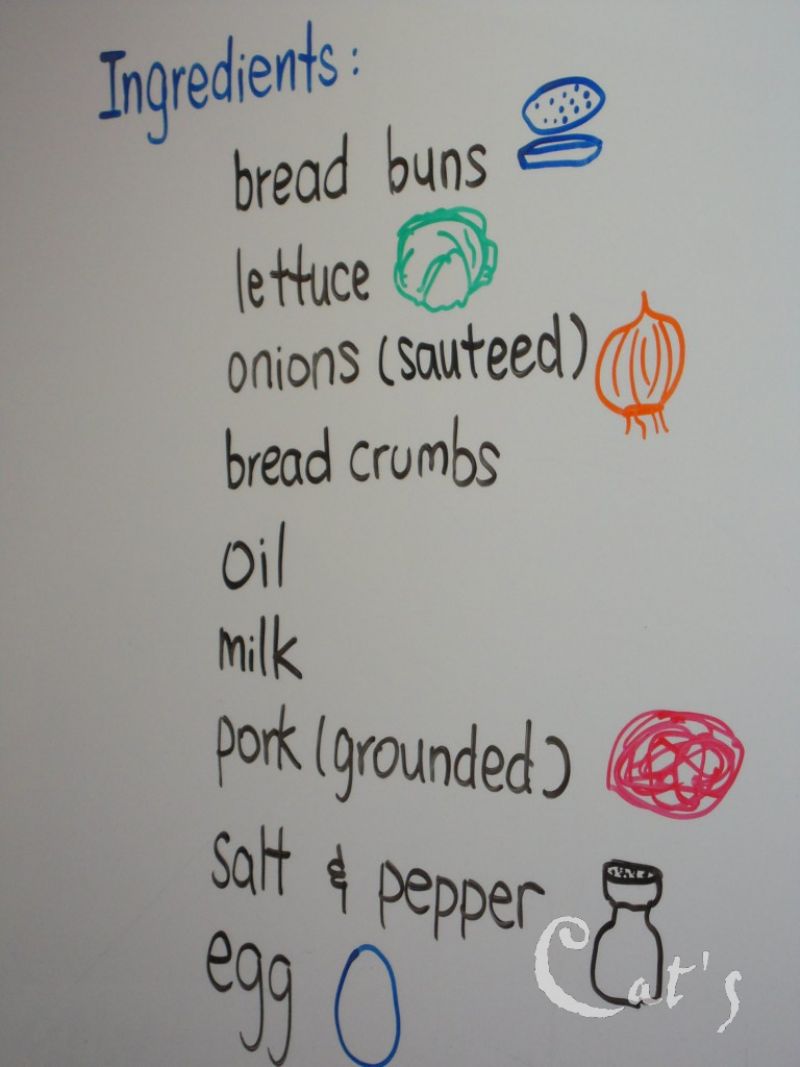 Ingredients:
bread buns
lettuce
onions (sauteed)
bread crumbs
oil
milk
pork (grounded)
salt & pepper
egg
Cat's